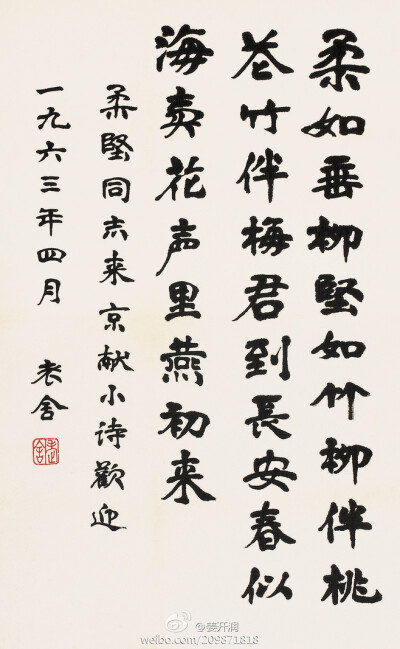 柔如垂柳堅如竹柳伴桃
花竹伴梅君到長安春似
海卖花声里燕初来
柔堅同志来京献小诗歡迎
一九六三年四月 老舍
老舍
@姜开润
weibo.com/209871818